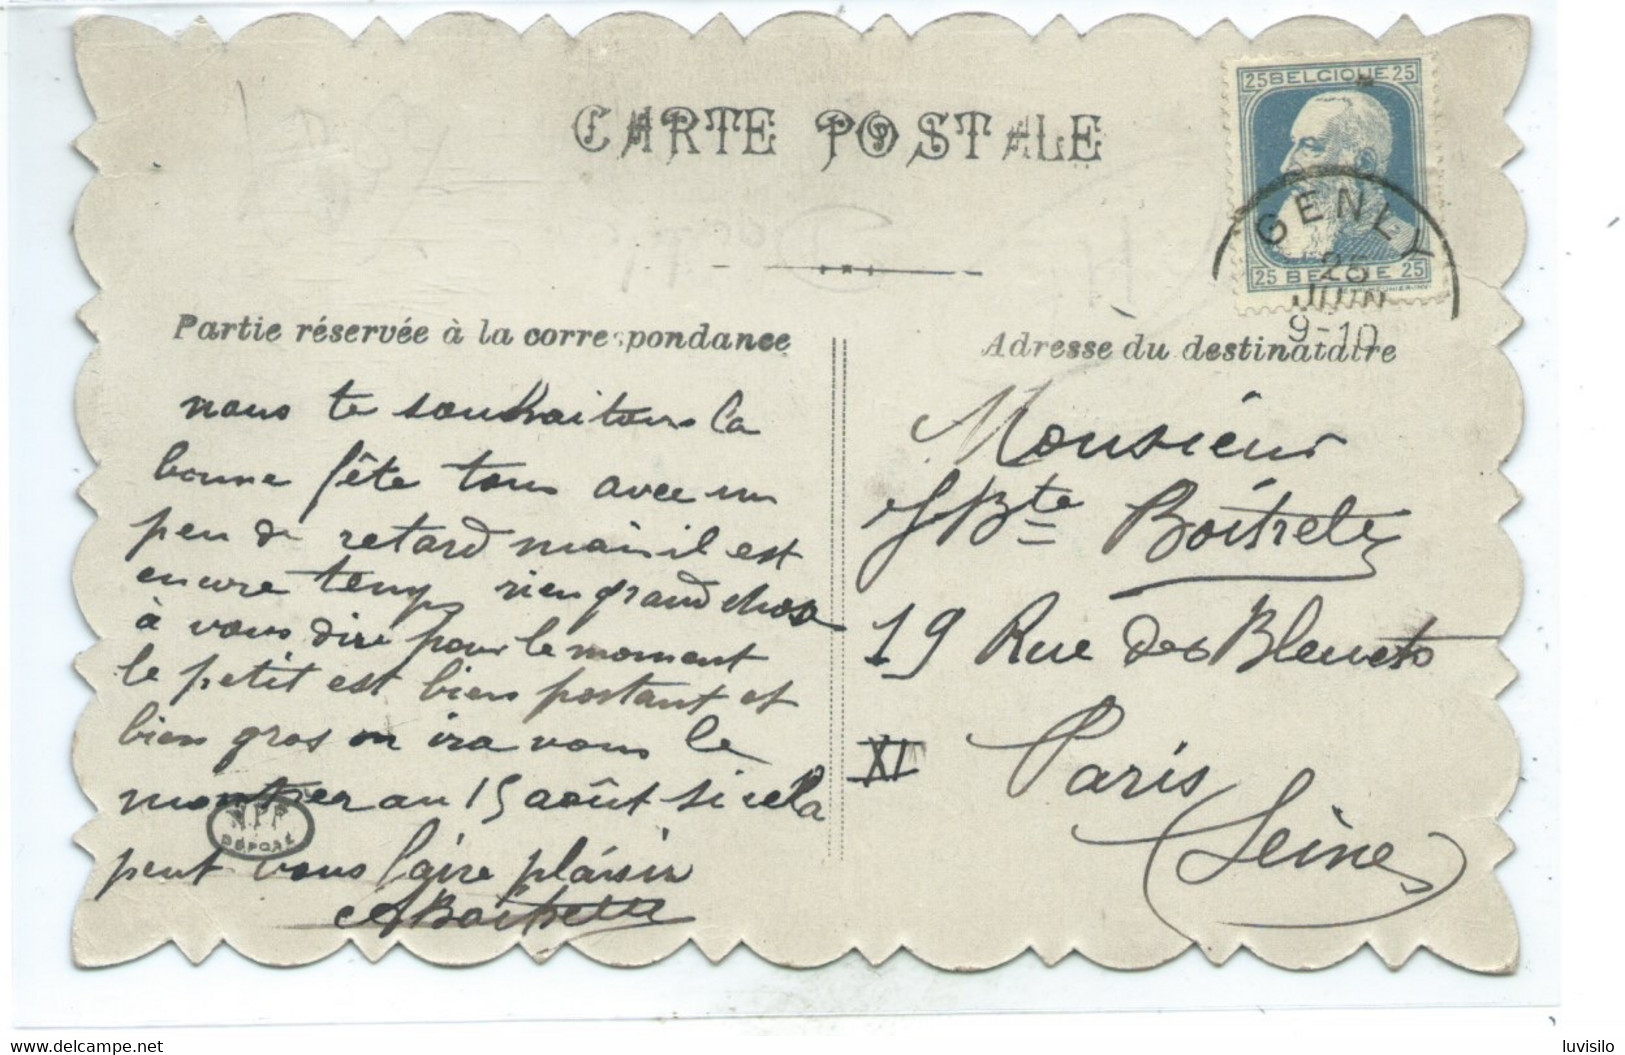 CARTE POSTALE
25 BELGIQUE 25
25 BELGIE 25
GENLY
25
JUIN
9-10
Partie réservée à la correspondance
nous te souhaitons la
bonne fête tous avec un
peu de retard mais il est
encore temps rien grand chose
à vous dire pour le moment
le petit est bien portant et
bien gros on ira vous le
montrer au 15 août si cela
peut vous faire plaisir
DÉPOSÉ
Adresse du destinataire
Monsieur
J Bte
19 Rue des Bleuets
XI Paris
(Seine)
luvisilo
www.delcampe.net